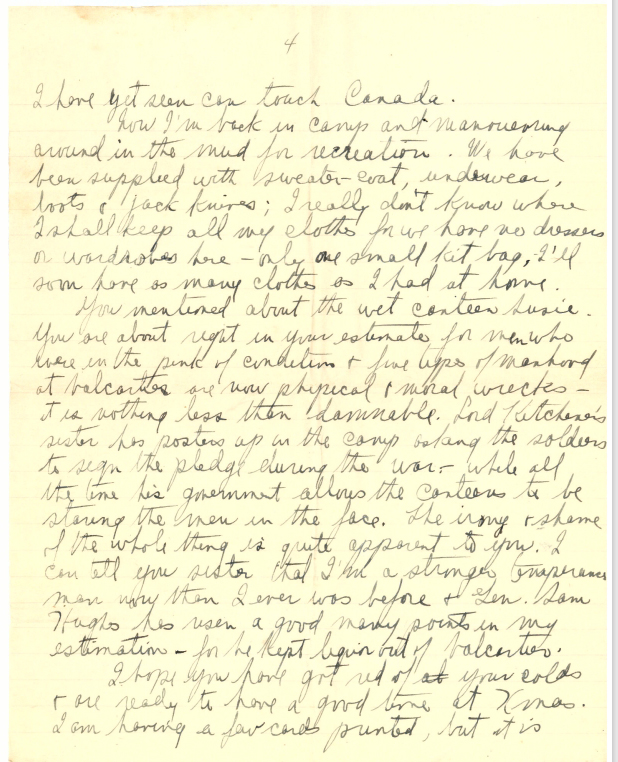 4
I have yet seen can touch Canada.
Now I'm back in camp and manouevring
around in the mud for recreation. We have
been supplied with sweater-coat, underwear,
boots & jack knives; I really don't know where
I shall keep all my clothes for we have no dressers
or wardrobes here - only one small kit bag, - I'll
soon have as many clothes as I had at home.
You mentioned about the wet canteen Susie.
You are about right in your estimate for men who
were in the pink of condition & fine types of manhood
at Valcartier are now physical & moral wrecks -
it is nothing less than damnable. Lord Kitchener's
sister has posters up in the camp asking the soldiers
to sign the pledge during the war - while all
the time his government allows the canteens to be
staring the men in the face. The irony & shame
of the whole thing is quite apparent to you. I
can tell you sister that I'm a stronger temperance
man now than I ever was before & Gen. Sam
Hughs has risen a good many points in my
estimation - for he kept liquor out of Valcartier.
I hope you have got rid of at your colds
& are ready to have a good time at Xmas.
I am having a few cards printed, but it is